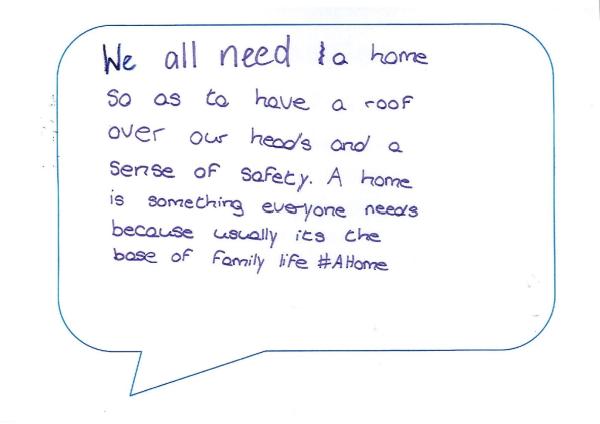 We all need a home
so as to have a roof
over our heads and a
sense of safety. A home
is something everyone needs
because usually its the
base of family life #AHome